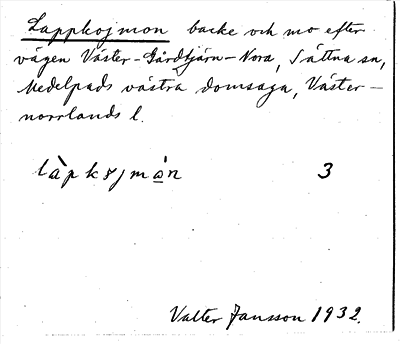 Lappkojmon backe och mo efter
vägen Väster-Gårdtjärn-Nora, Sättna sn,
Medelpads västra domsaga, Väster-
norrlands l.
làpkojmàn 3
Valter Jansson 1932.